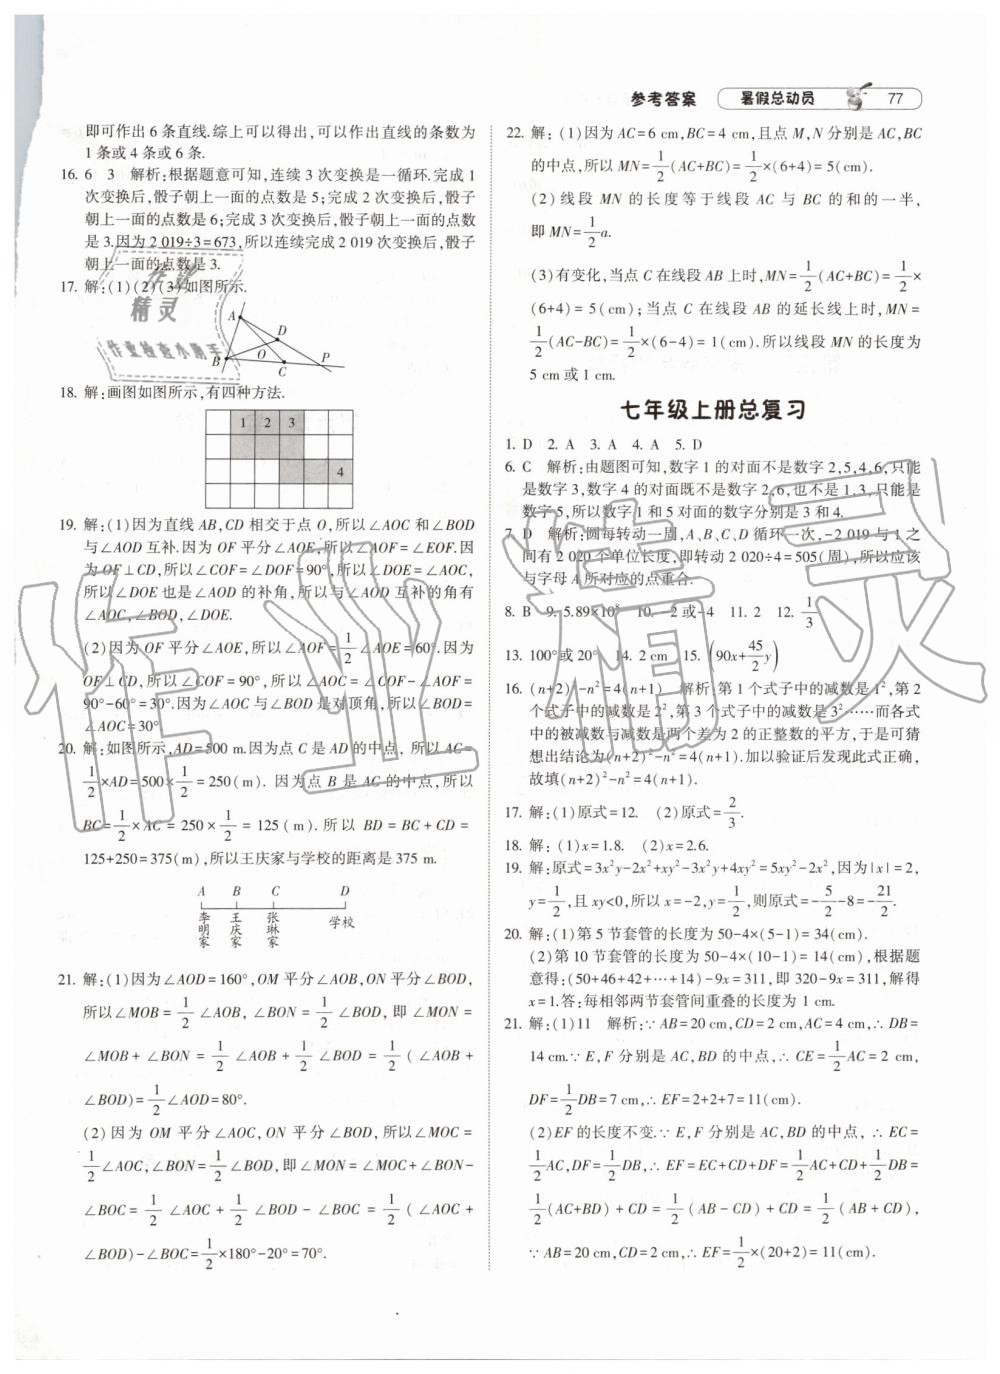 参考答案 暑假总动员 77
即可作出6条直线.综上可以得出,可以作出直线的条数为
1条或4条或6条.
16. 6 3 解析:根据题意可知,连续3次变换是一循环.完成1
次变换后,骰子朝上一面的点数是5;完成2次变换后,骰子
朝上一面的点数是6;完成3次变换后,骰子朝上一面的点数
是3.因为2 019÷3=673,所以连续完成2 019次变换后,骰子
朝上一面的点数是3.
17. 解:(1)(2)(3)如图所示.
A
D
B O C P
18. 解:画图如图所示,有四种方法.
1 2 3
4
19. 解:(1)因为直线AB,CD相交于点O,所以∠AOC和∠BOD
与∠AOD互补.因为OF平分∠AOE,所以∠AOF=∠EOF.因
为OF⊥CD,所以∠COF=∠DOF=90°,所以∠DOE=∠AOC,
所以∠DOE也是∠AOD的补角,所以与∠AOD互补的角有
∠AOC,∠BOD,∠DOE.
(2)因为OF平分∠AOE,所以∠AOF=1/2∠AOE=60°.因为
OF⊥CD,所以∠COF=90°,所以∠AOC=∠COF-∠AOF=
90°-60°=30°.因为∠AOC与∠BOD是对顶角,所以∠BOD=
∠AOC=30°.
20. 解:如图所示,AD=500 m.因为点C是AD的中点,所以AC=
1/2×AD=500×1/2=250(m).因为点B是AC的中点,所以
BC=1/2×AC=250×1/2=125(m).所以BD=BC+CD=
125+250=375(m),所以王庆家与学校的距离是375 m.
A B C D
李明家 王庆家 张琳家 学校
21. 解:(1)因为∠AOD=160°,OM平分∠AOB,ON平分∠BOD,
所以∠MOB=1/2∠AOB,∠BON=1/2∠BOD,即∠MON=
∠MOB+∠BON=1/2∠AOB+1/2∠BOD=1/2(∠AOB+
∠BOD)=1/2∠AOD=80°.
(2)因为OM平分∠AOC,ON平分∠BOD,所以∠MOC=
1/2∠AOC,∠BON=1/2∠BOD,即∠MON=∠MOC+∠BON-
∠BOC=1/2∠AOC+1/2∠BOD-∠BOC=1/2(∠AOC+
∠BOD)-∠BOC=1/2×180°-20°=70°.
22. 解:(1)因为AC=6 cm,BC=4 cm,且点M,N分别是AC,BC
的中点,所以MN=1/2(AC+BC)=1/2×(6+4)=5(cm).
(2)线段MN的长度等于线段AC与BC的和的一半,
即MN=1/2a.
(3)有变化,当点C在线段AB上时,MN=1/2(AC+BC)=1/2×
(6+4)=5(cm);当点C在线段AB的延长线上时,MN=
1/2(AC-BC)=1/2×(6-4)=1(cm).所以线段MN的长度为
5 cm或1 cm.
七年级上册总复习
1. D 2. A 3. A 4. A 5. D
6. C 解析:由题图可知,数字1的对面不是数字2,5,4,6,只能
是数字3,数字4的对面既不是数字2,6,也不是1,3,只能是
数字5,所以数字1和5对面的数字分别是3和4.
7. D 解析:圆每转动一周,A、B、C、D循环一次,-2 019与1之
间有2 020个单位长度,即转动2 020÷4=505(周),所以应该
与字母A所对应的点重合.
8. B 9. 5.89×10⁸ 10. -2或-4 11. 2 12. 1/3
13. 100°或20° 14. 2 cm 15. (90x+45/2y)
16. (n+2)²-n²=4(n+1) 解析:第1个式子中的减数是1²,第2
个式子中的减数是2²,第3个式子中的减数是3²……而各式中
的被减数与减数是两个差为2的正整数的平方,于是可猜
想出结论为(n+2)²-n²=4(n+1).加以验证后发现此式正确,
故填(n+2)²-n²=4(n+1).
17. 解:(1)原式=12. (2)原式=2/3.
18. 解:(1)x=1.8. (2)x=2.6.
19. 解:原式=3x²y-2x²+xy-3x²y+4xy²=5xy²-2x²,因为|x|=2,
y=1/2,且xy<0,所以x=-2,y=1/2,则原式=-5/2-8=-21/2.
20. 解:(1)第5节套管的长度为50-4×(5-1)=34(cm).
(2)第10节套管的长度为50-4×(10-1)=14(cm),根据题
意得:(50+46+42+…+14)-9x=311,即320-9x=311,解得
x=1.答:每相邻两节套管间重叠的长度为1 cm.
21. 解:(1)11 解析:∵AB=20 cm,CD=2 cm,AC=4 cm,∴DB=
14 cm.∵E,F分别是AC,BD的中点,∴CE=1/2AC=2 cm,
DF=1/2DB=7 cm,∴EF=2+2+7=11(cm).
(2)EF的长度不变.∵E,F分别是AC,BD的中点,∴EC=
1/2AC,DF=1/2DB,∴EF=EC+CD+DF=1/2AC+CD+1/2DB=
1/2(AC+BD)+CD=1/2(AB-CD)+CD=1/2(AB+CD),
∵AB=20 cm,CD=2 cm,∴EF=1/2×(20+2)=11(cm).
作业精灵
作业检查小助手
作业精灵